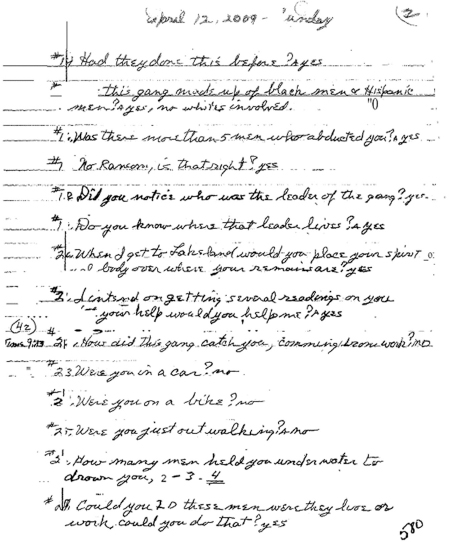 April 12, 2009 - Sunday
2
#14 Had they done this before? A yes
this gang made up of black men & Hispanic
men? A yes, no whites involved.
"0
#1 : Was there more than 5 men who abducted you? A yes
#1 No Ransom, is that right? yes
Did you notice who was the leader of the gang? yes
Do you know where that leader lives? A yes
When I get to Lakeland would you place your spirit
body over where your remains are? yes
I intend on getting several readings on you
your help would you help me? A yes
(42)
How did this gang catch you, comming from work? no
#23 Were you in a car? no
Were you on a bike? no
#25 Were you just out walking? A no
How many men held you under water to
drown you, 2 - 3 - 4
Could you ID these men were they live or
work, could you do that? yes
580